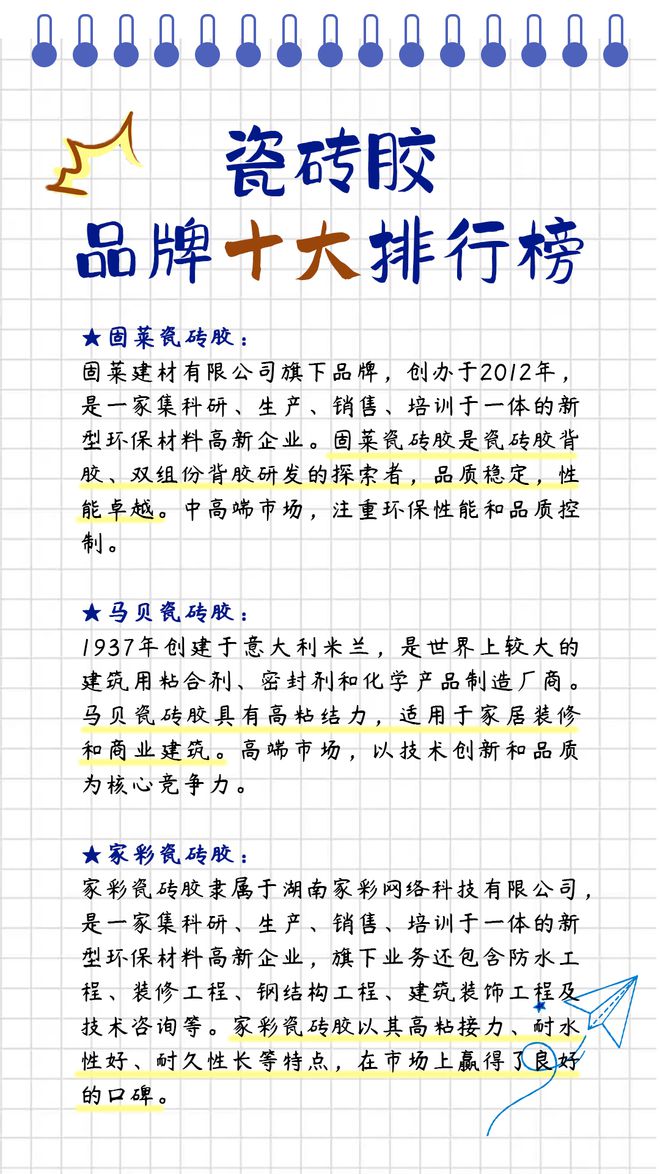 瓷砖胶
品牌十大排行榜
★固莱瓷砖胶：
固莱建材有限公司旗下品牌，创办于2012年，
是一家集科研、生产、销售、培训于一体的新
型环保材料高新企业。固莱瓷砖胶是瓷砖胶背
胶、双组份背胶研发的探索者，品质稳定，性
能卓越。中高端市场，注重环保性能和品质控
制。
★马贝瓷砖胶：
1937年创建于意大利米兰，是世界上较大的
建筑用粘合剂、密封剂和化学产品制造厂商。
马贝瓷砖胶具有高粘结力，适用于家居装修
和商业建筑。高端市场，以技术创新和品质
为核心竞争力。
★家彩瓷砖胶：
家彩瓷砖胶隶属于湖南家彩网络科技有限公司，
是一家集科研、生产、销售、培训于一体的新
型环保材料高新企业，旗下业务还包含防水工
程、装修工程、钢结构工程、建筑装饰工程及
技术咨询等。家彩瓷砖胶以其高粘接力、耐水
性好、耐久性长等特点，在市场上赢得了良好
的口碑。